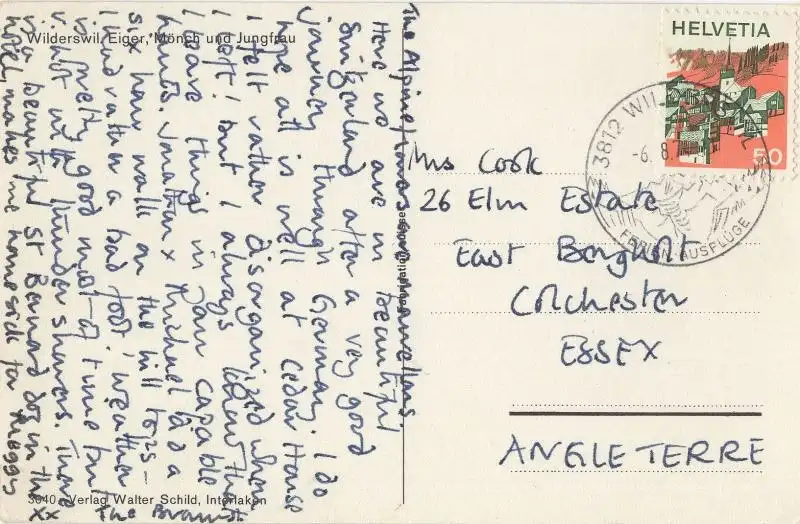 Wilderswil, Eiger, Mönch und Jungfrau
The Alpine flowers are marvellous.
Here we are in beautiful
Switzerland after a very good
journey through Germany. I do
hope all is well at Cedar House
I felt rather disorganized when
I left! but I always know that
I leave things in your capable
hands. Jonathan & Michael had a
six hour walk on the hill tops –
I had rather a bad foot, weather
is pretty good most of time but
v. hot with thunder showers. There
is a beautiful St Bernard dog in the
hotel, makes me homesick for Maggs
xx
The Bramst
3040 Verlag Walter Schild, Interlaken
HELVETIA
50
3812 WIL
-6. 8. 7
FERIEN. AUSFLÜGE
Mrs Cook
26 Elm Estate
East Bergholt
Colchester
ESSEX
ANGLETERRE